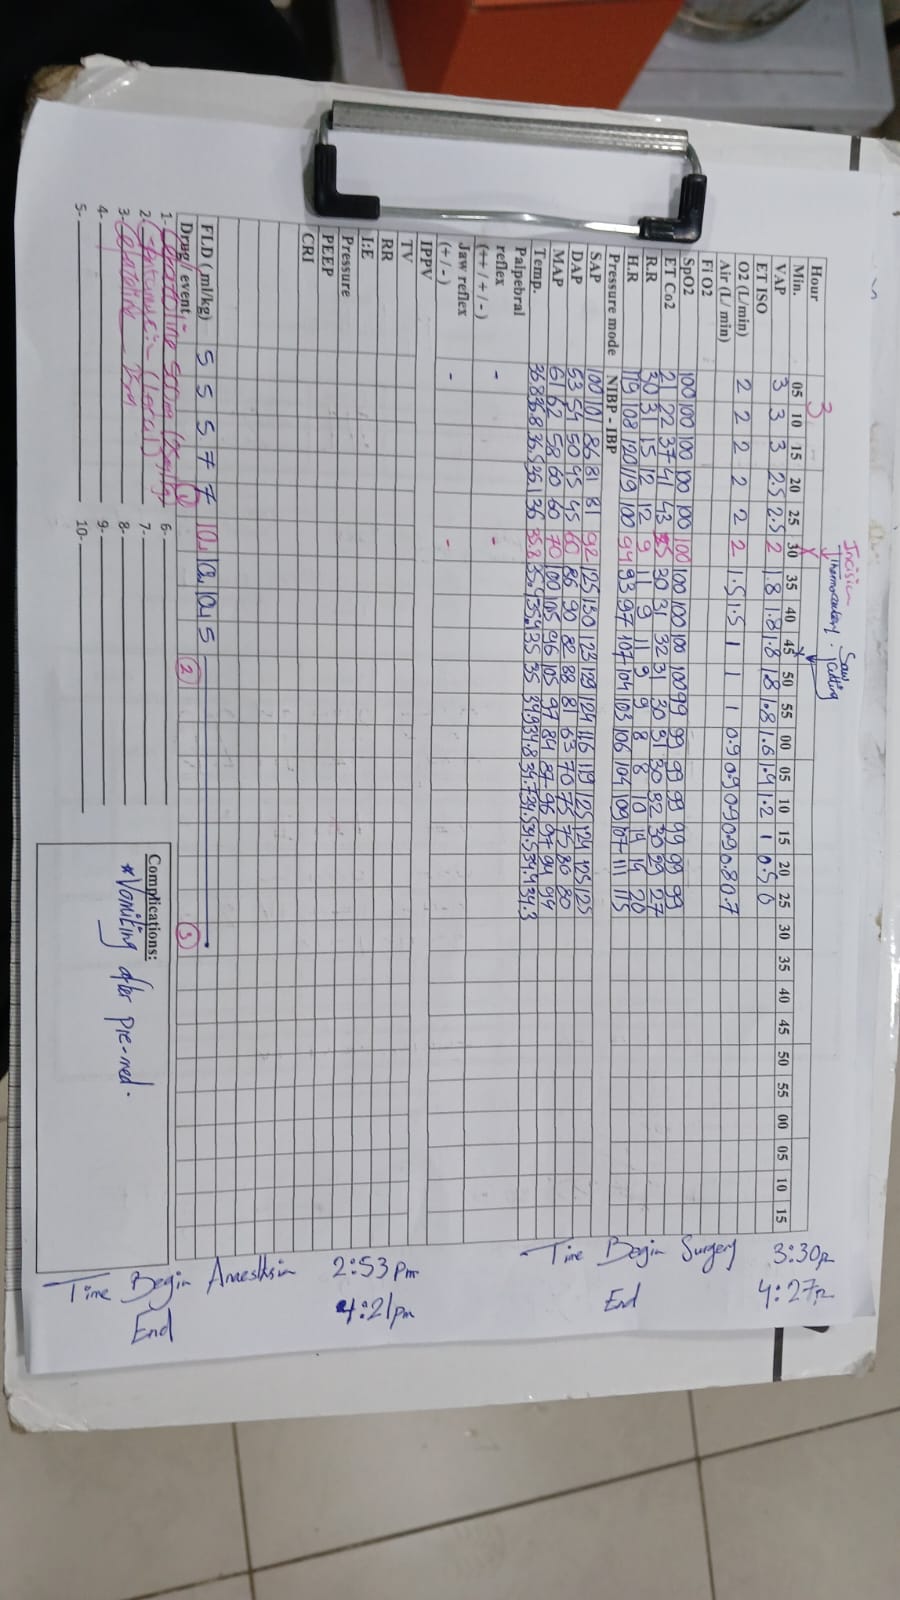 Incision
Thermocautery. Saw
cutting
Hour 3
Min. 05 10 15 20 25 30 35 40 45 50 55 00 05 10 15 20 25 30 35 40 45 50 55 00 05 10 15
VAP 3 3 3 2.5 2.5 2 1.8 1.8 1.8 1.8 1.8 1.6 1.4 1.2 1 0.5 0
ET ISO
O2 (L/min) 2 2 2 2 2 2 1.5 1.5 1 1 1 0.9 0.9 0.9 0.9 0.8 0.7
Air (L/ min)
Fi O2
SpO2 100 100 100 100 100 100 100 100 100 100 99 99 99 99 99 99 99
ET Co2 21 22 37 41 43 35 30 31 32 31 30 31 30 32 30 29 27
R.R 30 31 15 12 12 9 11 9 11 9 9 8 8 10 14 14 20
H.R 119 108 120 119 100 94 93 97 107 104 103 106 104 109 107 111 115
Pressure mode NIBP - IBP
SAP 100 101 86 81 81 92 125 130 123 129 124 116 119 125 124 125 125
DAP 53 54 50 45 45 60 86 90 82 88 81 63 70 75 75 80 80
MAP 61 62 58 60 60 70 100 105 96 105 97 84 87 96 97 94 94
Temp. 36.8 36.8 36.5 36.1 36 35.8 35.4 35.4 35 35 34.9 34.8 34.7 34.5 34.5 34.4 34.3
Palpebral
reflex - -
(++ / + / -)
Jaw reflex - -
(+ / -)
IPPV
TV
RR
I:E
Pressure
PEEP
CRI
FLD (ml/kg) 5 5 5 7 7 10 10 10 5
Drug/ event 1 2 3
1- 6-
2. Gentamicin (Local) 7-
3- 8-
4- 9-
5- 10-
Complications:
*Vomiting after pre-med.
Time Begin Surgery 3:30p
End 4:27p
Time Begin Anaesthsia 2:53pm
End 4:21pm